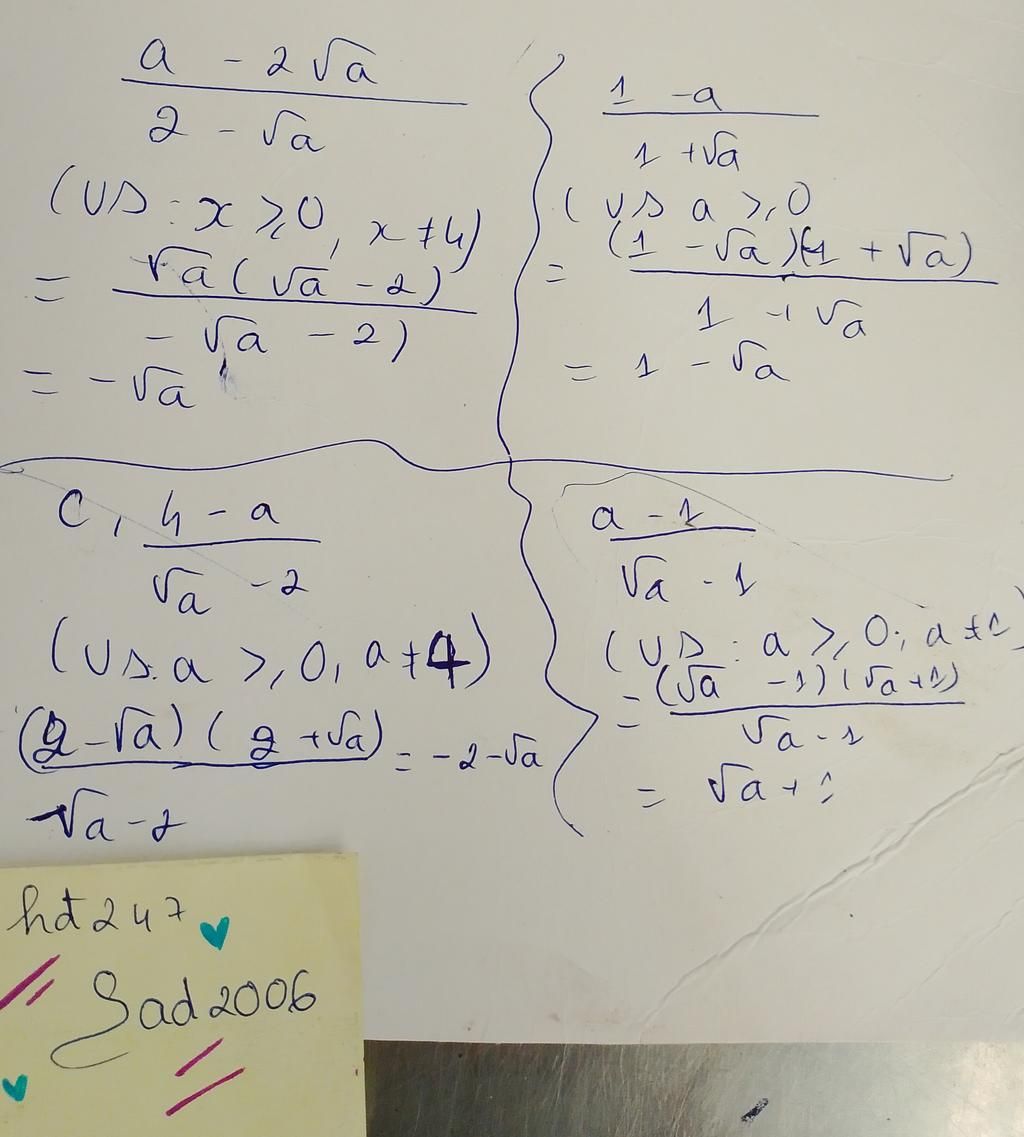 a - 2√a
2 - √a
(VD : x ≥ 0, x ≠ 4)
= √a (√a - 2)
- √a - 2)
= -√a
1 - a
1 + √a
( VD a ≥ 0
= (1 - √a)(1 + √a)
1 + √a
= 1 - √a
C, 4 - a
√a - 2
(VD. a ≥ 0, a ≠ 4)
(2 - √a) ( 2 + √a) = -2 - √a
√a - 2
a - 1
√a - 1
(VD : a ≥ 0; a ≠ 1
= (√a - 1) (√a + 1)
√a - 1
= √a + 1
hđ247
Sad2006